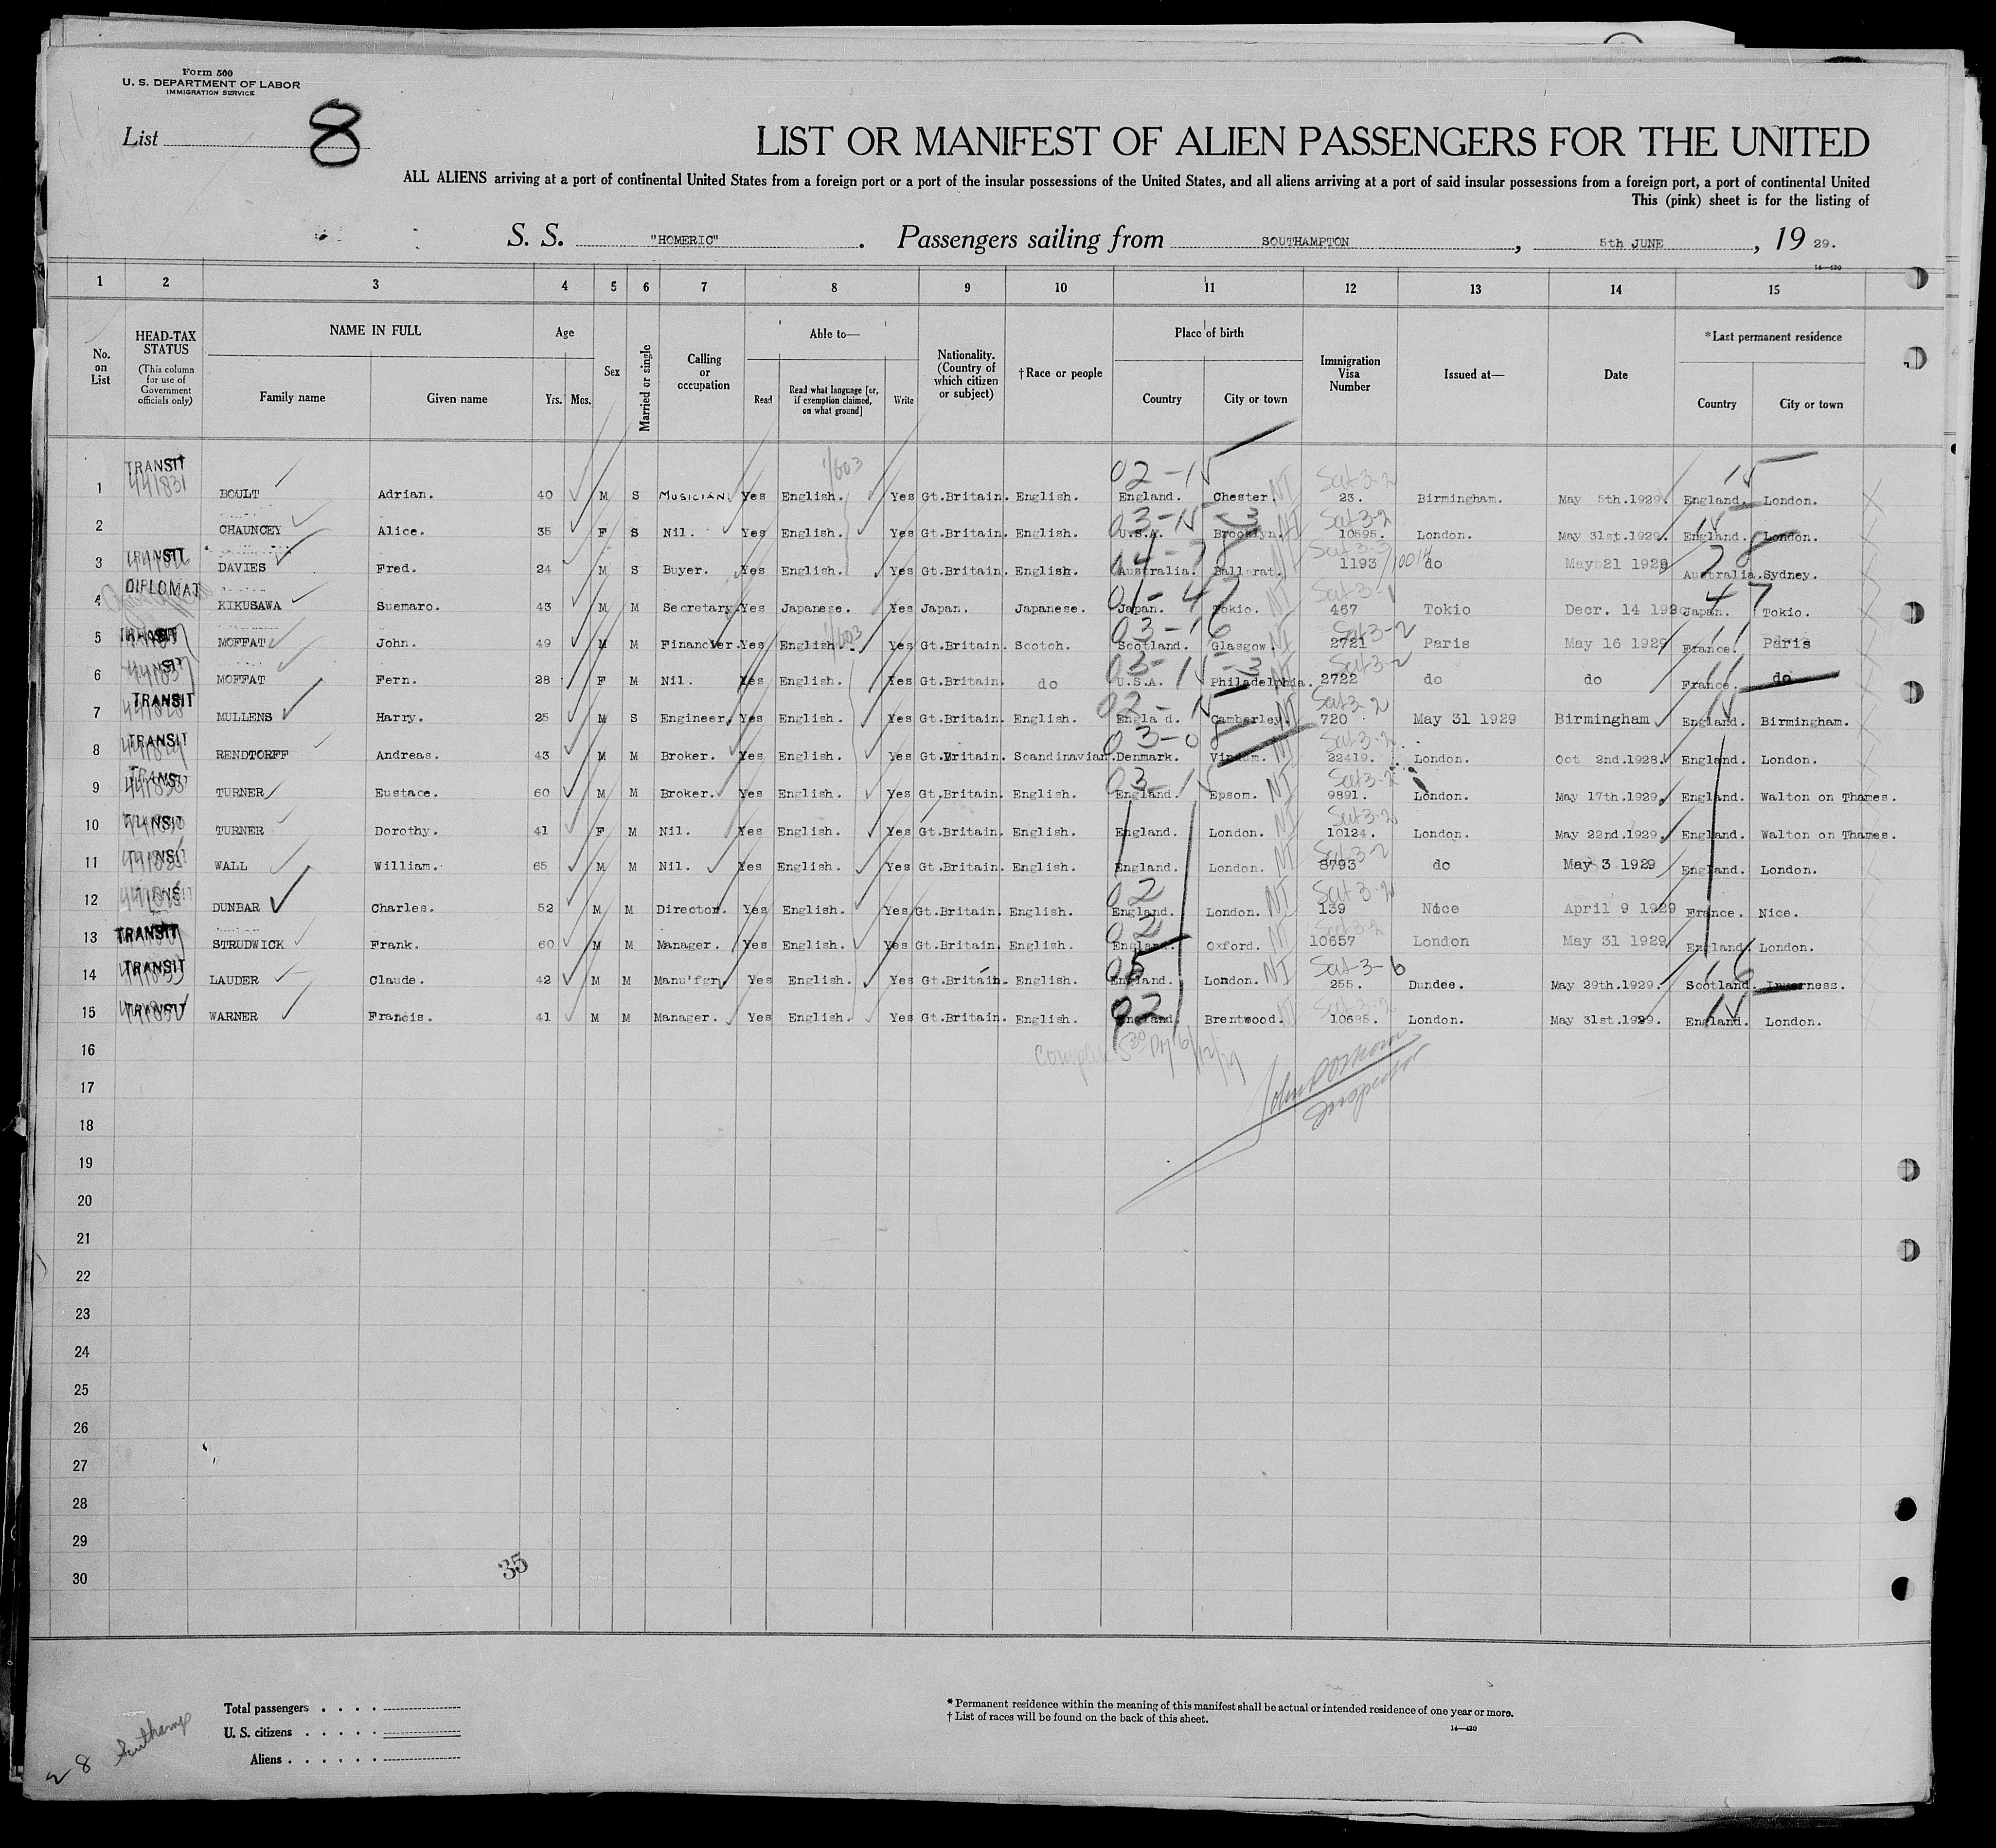 Form 500
U. S. DEPARTMENT OF LABOR
IMMIGRATION SERVICE
List 8
LIST OR MANIFEST OF ALIEN PASSENGERS FOR THE UNITED
ALL ALIENS arriving at a port of continental United States from a foreign port or a port of the insular possessions of the United States, and all aliens arriving at a port of said insular possessions from a foreign port, a port of continental United
This (pink) sheet is for the listing of
S. S. "HOMERIC" . Passengers sailing from SOUTHAMPTON , 5th JUNE , 19 29.
14—420
1 2 3 4 5 6 7 8 9 10 11 12 13 14 15
No. on List HEAD-TAX STATUS (This column for use of Government officials only) NAME IN FULL Family name Given name Age Yrs. Mos. Sex Married or single Calling or occupation Able to— Read Read what language [or, if exemption claimed, on what ground] Write Nationality. (Country of which citizen or subject) †Race or people Place of birth Country City or town Immigration Visa Number Issued at— Date *Last permanent residence Country City or town
1 TRANSIT 441831 BOULT Adrian. 40 M S MUSICIAN. Yes English. Yes Gt.Britain. English. 02-15 England. Chester. NI Sect 3-2 23. Birmingham. May 5th.1929. 15 England. London.
2 CHAUNCEY Alice. 35 F S Nil. Yes English. Yes Gt.Britain. English. 03-15-3 U.S.A. Brooklyn. NI Sect 3-2 10595. London. May 31st.1929. 15 England. London.
3 TRANSIT DAVIES Fred. 24 M S Buyer. Yes English. Yes Gt.Britain. English. 04-78 Australia. Ballarat. 1193 do May 21 1929 78 Australia. Sydney.
4 DIPLOMAT KIKUSAWA Suemaro. 43 M M Secretary. Yes Japanese. Yes Japan. Japanese. 01-47 Japan. Tokio. NI Sect 3-1 467 Tokio Decr. 14 Japan. 47 Tokio.
5 TRANSIT MOFFAT John. 49 M M Financier. Yes English. Yes Gt.Britain. Scotch. 03-16 Scotland. Glasgow. NI Sect 3-2 2721 Paris May 16 1929 11 France. Paris
6 MOFFAT Fern. 28 F M Nil. Yes English. Yes Gt.Britain. do 03-15-3 U.S.A. Philadelphia. NI Sect 3-2 2722 do do 11 France. do
7 TRANSIT MULLENS Harry. 25 M S Engineer. Yes English. Yes Gt.Britain. English. 02-15 Engla d. Camberley. NI Sect 3-2 720 May 31 1929 Birmingham 15 England. Birmingham.
8 TRANSIT RENDTORFF Andreas. 43 M M Broker. Yes English. Yes Gt.Britain. Scandinavian. 03-08 Denmark. NI Sect 3-2 22419. London. Oct 2nd.1928. England. London.
9 TRANSIT TURNER Eustace. 60 M M Broker. Yes English. Yes Gt.Britain. English. 03-15 England. Epsom. NI Sect 3-2 9891. London. May 17th.1929. England. Walton on Thames.
10 TURNER Dorothy. 41 F M Nil. Yes English. Yes Gt.Britain. English. England. London. NI Sect 3-2 10124. London. May 22nd.1929. England. Walton on Thames.
11 WALL William. 65 M M Nil. Yes English. Yes Gt.Britain. English. England. London. NI Sect 3-2 8793 do May 3 1929 England. London.
12 DUNBAR Charles. 52 M M Director. Yes English. Yes Gt.Britain. English. 02 England. London. NI Sect 3-2 139 Nice April 9 1929 France. Nice.
13 TRANSIT STRUDWICK Frank. 60 M M Manager. Yes English. Yes Gt.Britain. English. 02 England. Oxford. NI 10657 London May 31 1929 England. London.
14 TRANSIT LAUDER Claude. 42 M M Manu'fgr. Yes English. Yes Gt.Britain. English. 05 England. London. NI Sect 3-6 255. Dundee. May 29th.1929. 16 Scotland. Inverness.
15 TRANSIT WARNER Francis. 41 M M Manager. Yes English. Yes Gt.Britain. English. 02 England. Brentwood. NI Sect 3-2 10635. London. May 31st.1929. 15 England. London.
16
17
18
19
20
21
22
23
24
25
26
27
28
29
30
35
Total passengers
U. S. citizens
Aliens
* Permanent residence within the meaning of this manifest shall be actual or intended residence of one year or more.
† List of races will be found on the back of this sheet.
14—420
8 Southamp